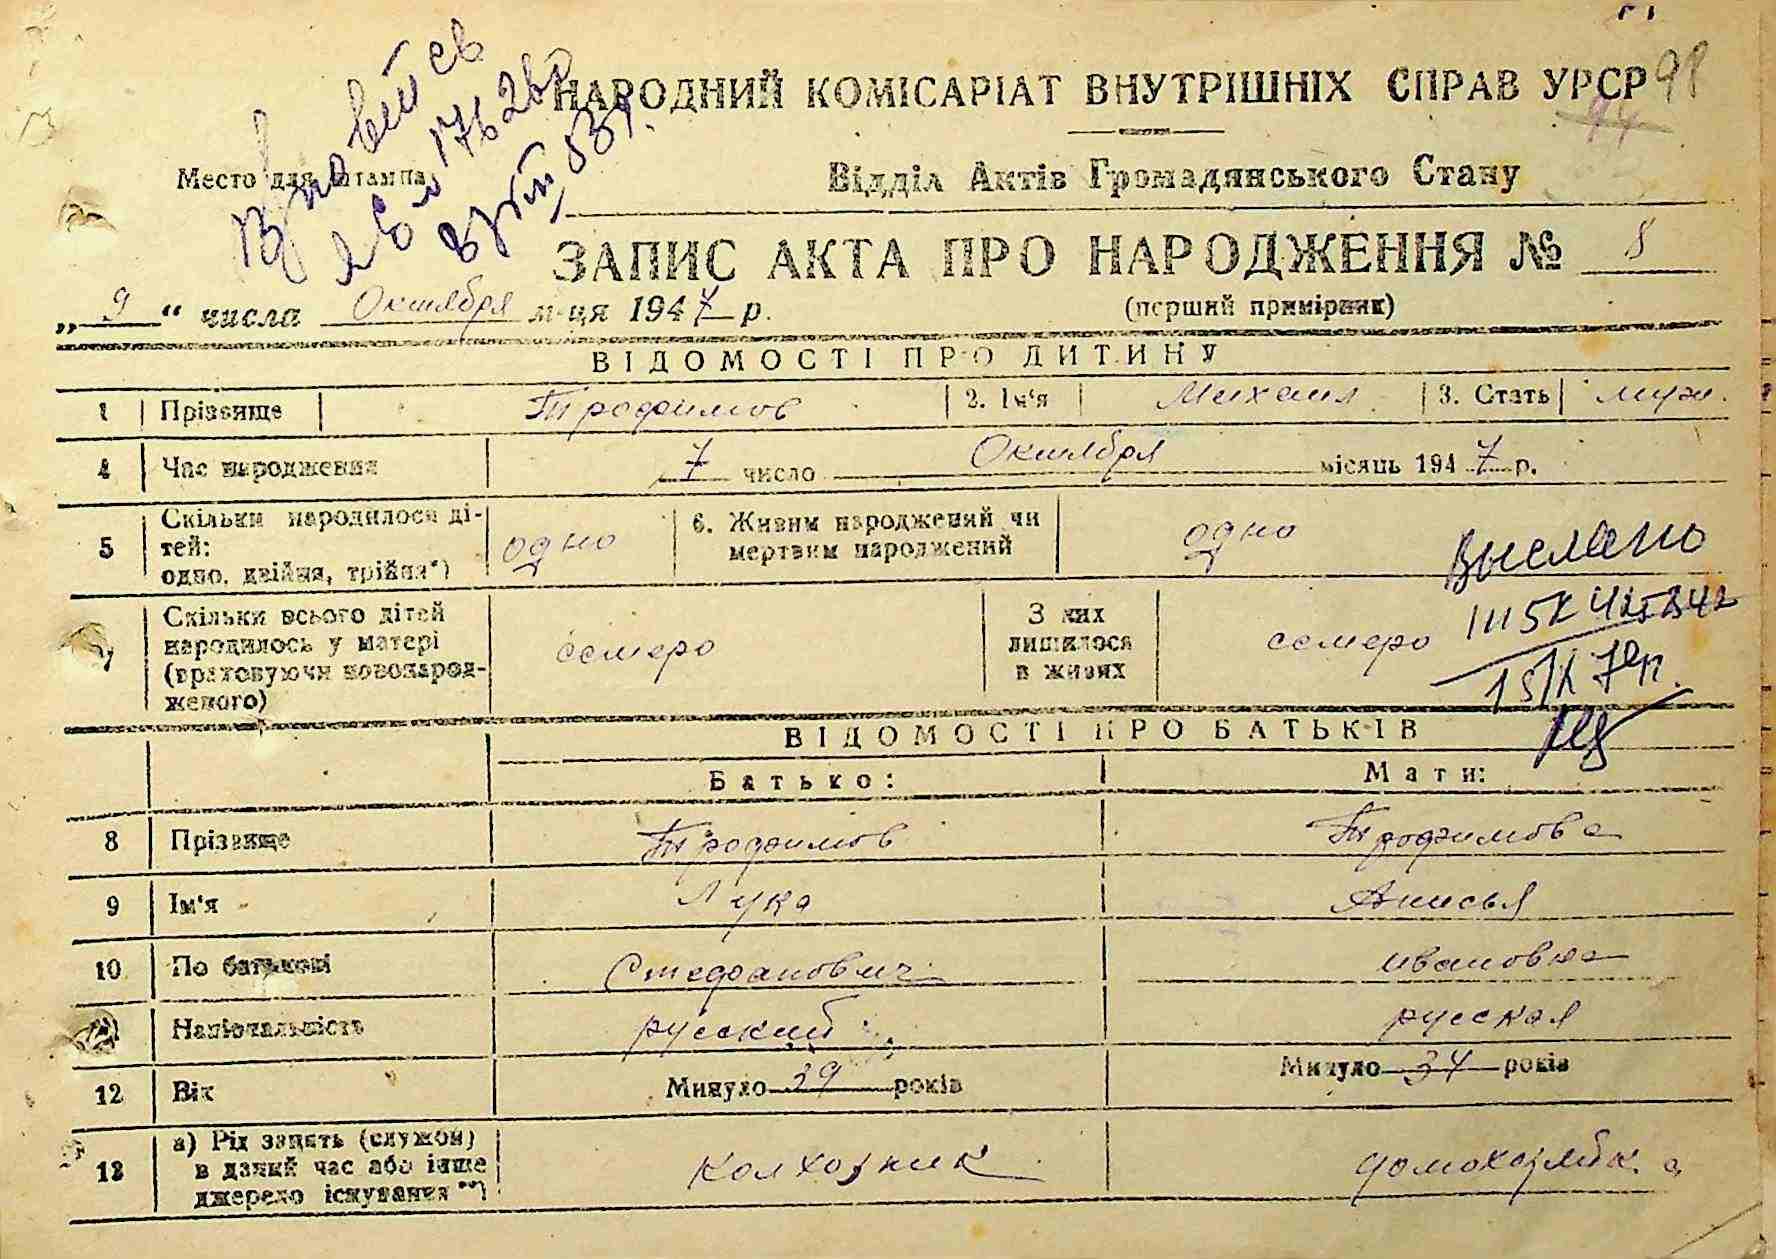 98
НАРОДНИЙ КОМІСАРІАТ ВНУТРІШНІХ СПРАВ УРСР
Место для штампа
Відділ Актів Громадянського Стану
ЗАПИС АКТА ПРО НАРОДЖЕННЯ № 8
„ 9 “ числа Октября м-ця 1947 р. (перший примірник)
ВІДОМОСТІ ПРО ДИТИНУ
1 Прізвище Трофимов 2. Ім'я Михаил 3. Стать муж.
4 Час народження 7 число Октября місяць 1947 р.
5 Скільки народилося дітей: одно, двійня, трійня*) одно 6. Живим народжений чи мертвим народжений одно
Выслано
7 Скільки всього дітей народилось у матері (враховуючи новонародженого) семеро З них лишилося в живих семеро
ВІДОМОСТІ ПРО БАТЬКІВ
Батько: Мати:
8 Прізвище Трофимов Трофимова
9 Ім'я Лука Анисья
10 По батькові Стефанович Ивановна
Національність русский русская
12 Вік Минуло 39 років Минуло 34 років
13 а) Рід занять (служби) в даний час або інше джерело існування **) колхозник домохозяйка